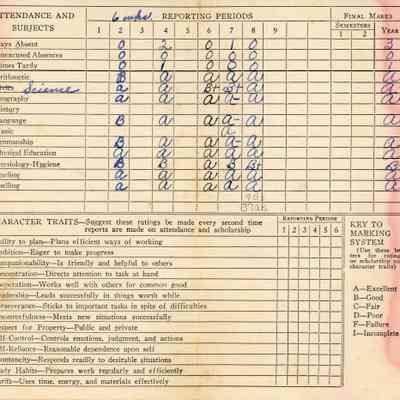 TTENDANCE AND SUBJECTS 6 wks. REPORTING PERIODS FINAL MARKS
SEMESTERS YEAR
1 2 3 4 5 6 7 8 9 1 2
ays Absent 0 2 0 1 0 3
nexcused Absences 0 0 0 0 0
imes Tardy 0 1 0 0 0
rithmetic B a a a a a
Science a a B+ B+ a
eography a a a a- a
istory
anguage B a a a- a a
usic a
enmanship B a a a- a
hysical Education a a a a a
hysiology-Hygiene B B a B B+
eading a a a a a
elling a a a a a
HARACTER TRAITS—Suggest these ratings be made every second time reports are made on attendance and scholarship
REPORTING PERIODS
1 2 3 4 5 6
bility to plan—Plans efficient ways of working
mbition—Eager to make progress
ompanionability—Is friendly and helpful to others
oncentration—Directs attention to task at hand
operation—Works well with others for common good
eadership—Leads successfully in things worth while
erseverance—Sticks to important tasks in spite of difficulties
esourcefulness—Meets new situations successfully
espect for Property—Public and private
lf-Control—Controls emotions, judgment, and actions
lf-Reliance—Reasonable dependence upon self
ontaneity—Responds readily to desirable situations
udy Habits—Prepares work regularly and efficiently
hrift—Uses time, energy, and materials effectively
KEY TO
MARKING
SYSTEM
(Use these le
ters for rating
on scholarship an
character traits)
A—Excellent
B—Good
C—Fair
D—Poor
F—Failure
I—Incomplete